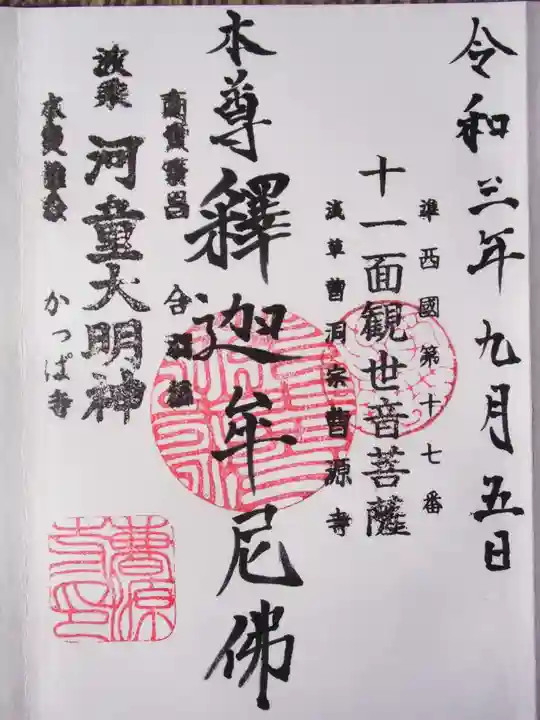 令和三年九月五日
準西國第十七番
十一面観世音菩薩
浅草曹洞宗曹源寺
本尊釋迦牟尼佛
商賣繁昌
合羽橋
波乗
河童大明神
かっぱ寺
曹源
寺印